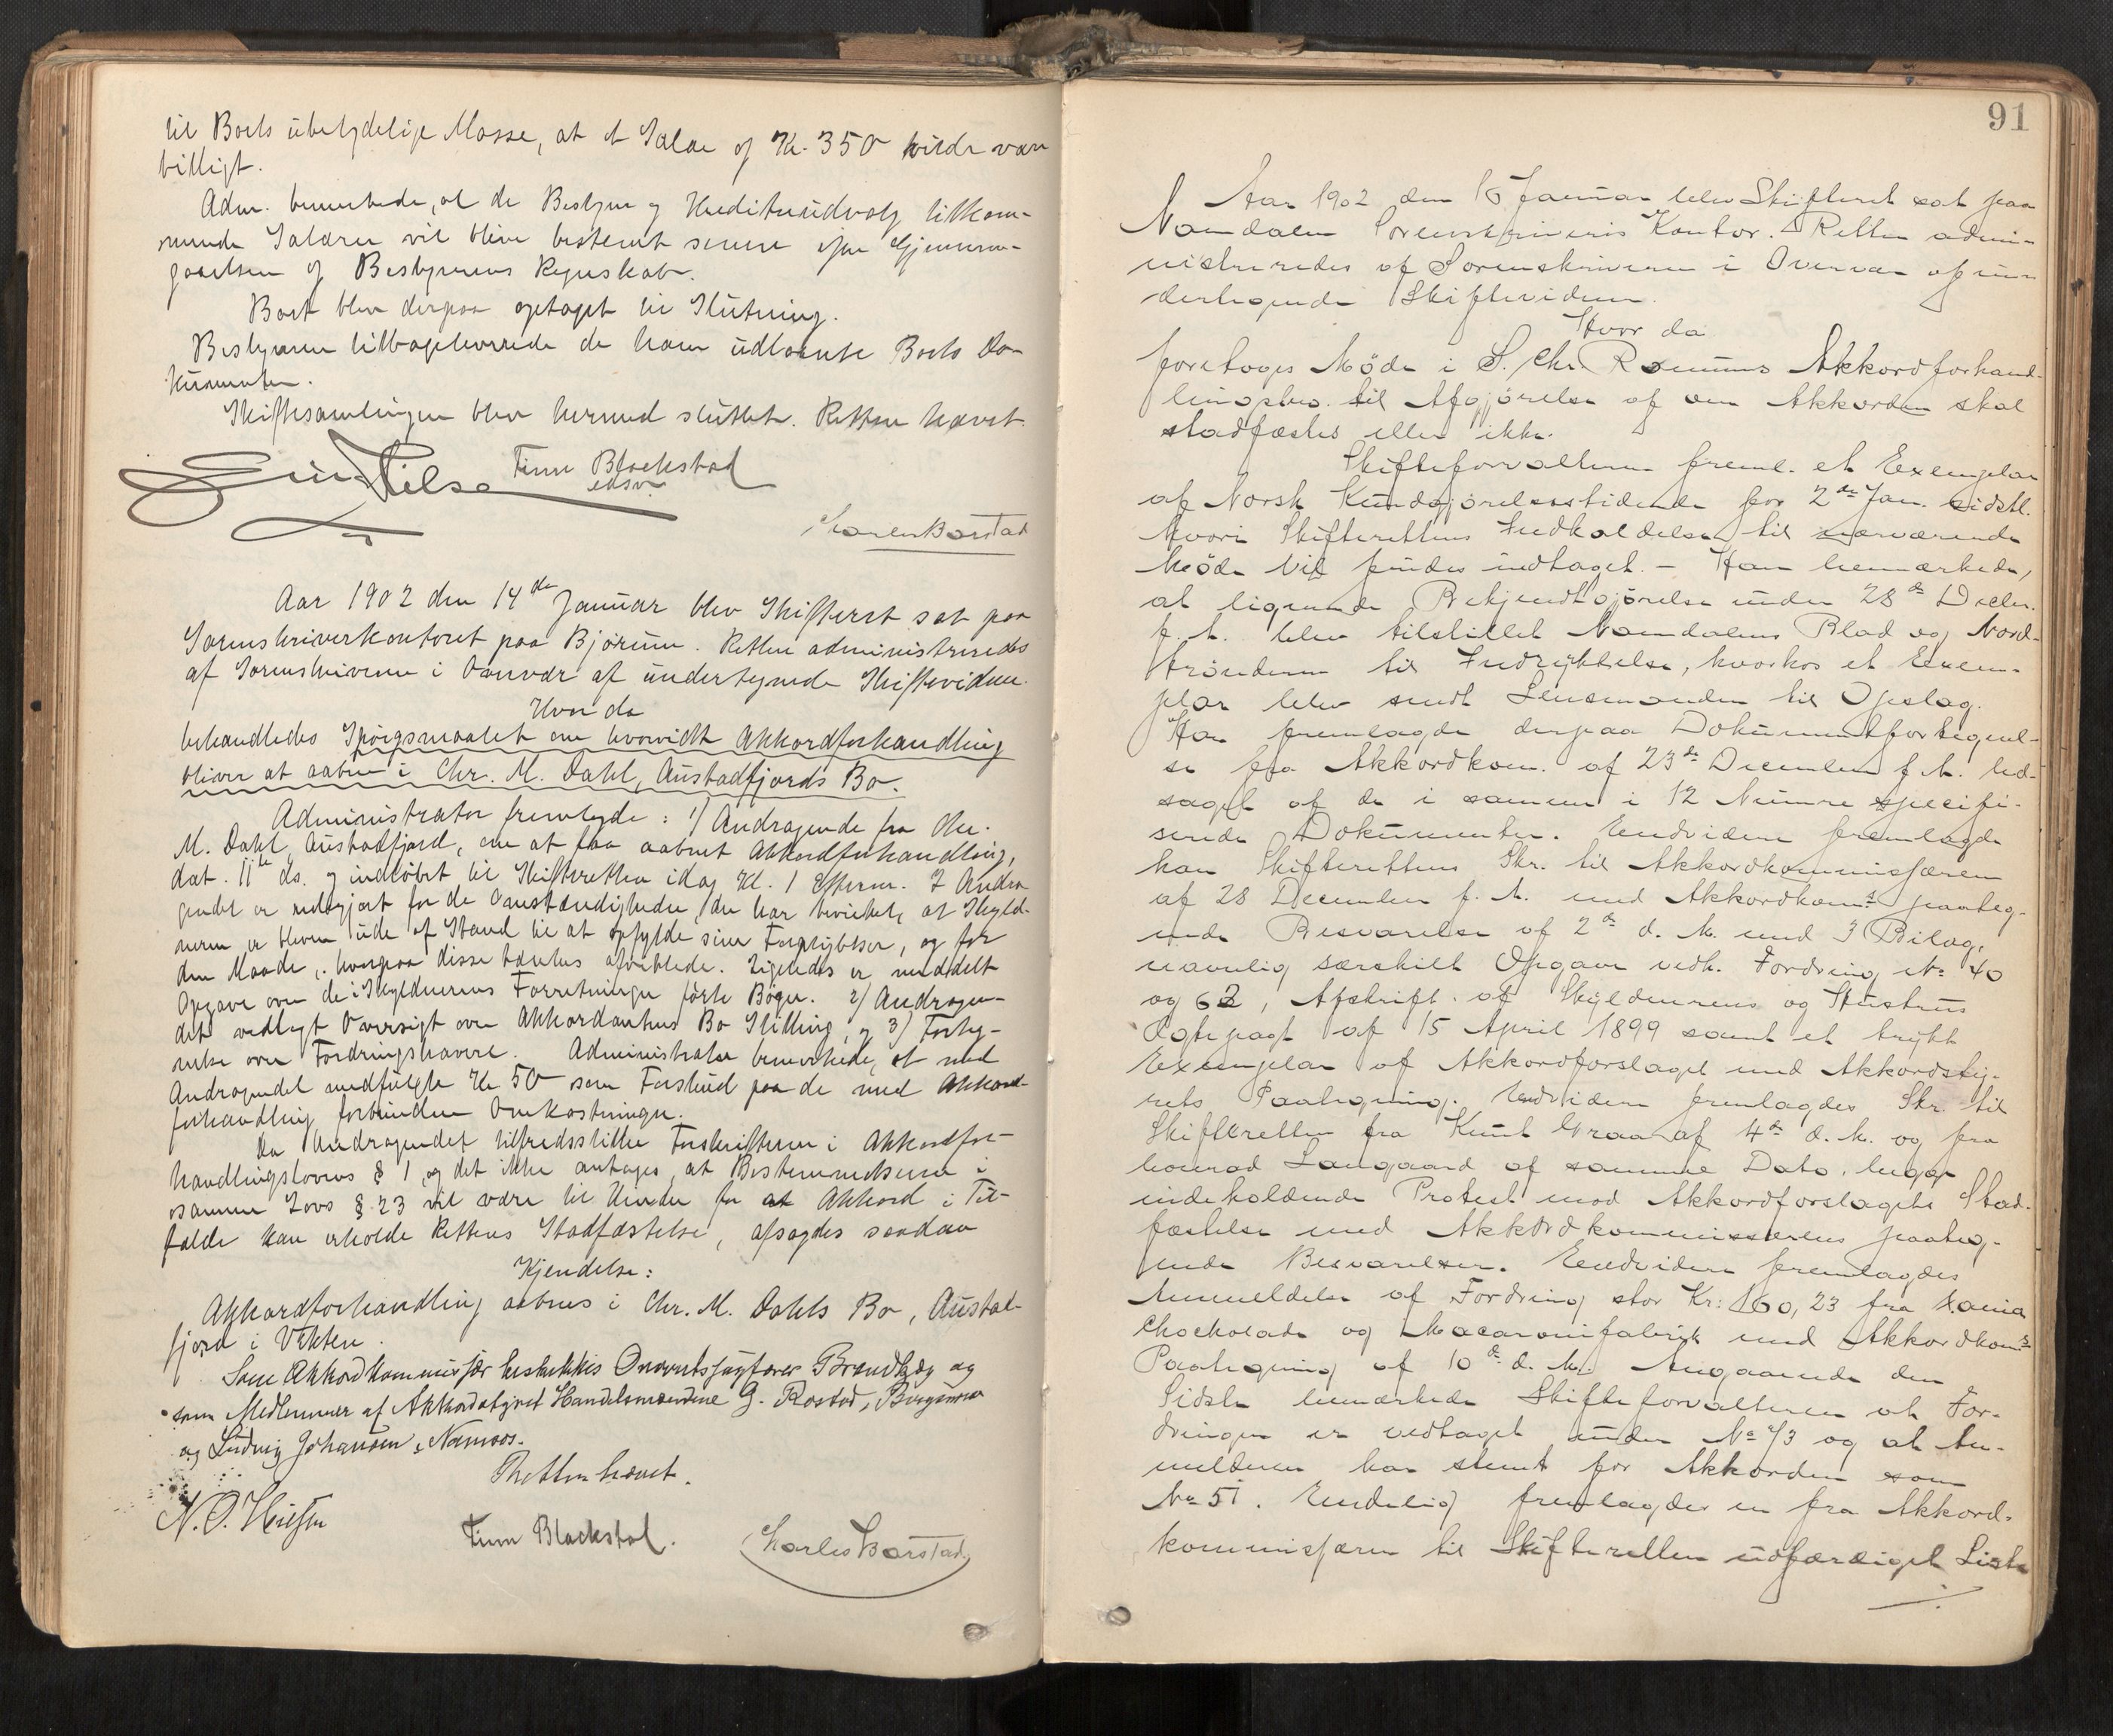 til Boets übetydelige Masse, at et Salær af Kr. 350 vilde være
billigt.
Adm. bemerkede, at de Bestyrer og Kreditorudvalg tilkom-
mende Salærer vil blive bestemt senere efter Gjennem-
gaaelsen af Bestyrerens Regnskab.
Boet blev derpaa optaget til Slutning.
Bestyreren tilbageleverede de ham udlaante Boets Do-
kumenter.
Skiftesamlingen blev hermed sluttet. Retten hævet.
Finn Blackstad
edsv.
Charles Barstad
Aar 1902 den 14de Januar blev Skifteret sat paa
Sorenskriverkontoret paa Bjørum. Retten administreredes
af Sorenskriveren i Overvær af undertegnede Skiftevidner.
Hvor da
behandledes Spørgsmaalet om hvorvidt Akkordforhandling
bliver at aabne i Chr. M. Dahl, Austadfjords Bo.
Administrator fremlagde: 1) Andragende fra Chr.
M. Dahl, Austadfjord, om at faa aabnet Akkordforhandling,
dat. 11te ds. og indløbet til Skifteretten idag Kl. 1 Efterm. I Andra
gendet er redegjort for de Omstændigheder, der har bevirket, at Skyld-
neren er bleven ude af Stand til at opfylde sine Forpligtelser, og for
den Maade, hvorpaa disse tænkes afviklede. Ligeledes er meddelt
Opgave over de i Skyldnerens Forretninger førte Bøger. 2) Andragen-
det vedlagt Oversigt over Akkordantens Bo Stilling, og 3) Forteg-
nelse over Fordringshavere. Administrator bemerkede, at med
Andragendet medfulgte Kr 50 som Forskud paa de med Akkord-
forhandling forbundne Omkostninger.
Da Andragendet tilfredsstiller Forskrifterne i Akkordfor-
handlingslovens § 1, og det ikke antages, at Bestemmelserne i
samme Lovs § 23 vil være til Hinder for at Akkord i Til-
fælde kan erholde Rettens Stadfæstelse, afsagdes saadan
Kjendelse:
Akkordforhandling aabnes i Chr. M. Dahls Bo, Austad-
fjord i Vikten.
Som Akkordkommissær beskikkes Overretssagfører Brandtzæg og
som Medlemmer af Akkordstyret Handelsmændene G. Rostad, Bingsmo
og Ludvig Johansen, Namsos.
Retten hævet.
Finn Blackstad.
Charles Barstad
91
Aar 1902 den 16 Januar blev Skifteret sat paa
Namdalen Sorenskriveris Kontor. Retten admi-
nistreredes af Sorenskriveren i Overvær af un-
dertegnede Skiftevidner.
Hvor da
foretoges Møde i S. Chr. Rømums Akkordforhand-
lingsbo til Afgjørelse af om Akkorden skal
stadfæstes eller ikke.
Skifteforvalteren freml. et Exemplar
af Norsk Kundgjørelsestidende for 2de Jan. sidstl.
hvori Skifterettens Indkaldelse til nærværende
Møde vil findes indtaget. - Han bemærkede,
at lignende Bekjendtgjørelse under 28de Decbr.
f. A. blev tilstillet Namdalens Blad og Nord-
trønderen til Indrykkelse, hvorhos et Exem-
plar blev sendt Lensmanden til Opslag.
Han fremlagde derpaa Dokumentfortegnel-
se fra Akkordkom. af 23de December f. A. led-
saget af de i samme i 12 Numre specifi-
serede Dokumenter. Endvidere fremlagde
han Skifterettens Skr. til Akkordkommissæren
af 28 December f. A. med Akkordkoms. paateg-
nede Besvarelse af 2de d. M. med 3 Bilag,
navnlig særskilt Opgave vedk. Fordring No 40
og 62, Afskrift af Skyldnerens og Hustrus
Ægtepagt af 15 April 1899 samt et trykt
Exemplar af Akkordforslaget med Akkordsty-
rets Paategning. Endvidere fremlagdes Skr. til
Skifteretten fra Knut Graa af 4de d. M. og fra
Konrad Langaard af samme Dato, begge
indeholdende Protest mod Akkordforslagets Stad-
fæstelse med Akkordkommissærens paateg-
nede Besvarelser. Endvidere fremlagdes
Anmeldelse af Fordring stor Kr: 160,23 fra Xania
Chokolade og Macaronifabrik med Akkordkoms
Paategning af 10de d. M. Angaaende den
Sidste bemærkede Skifteforvalteren at For-
dringen er vedtaget under No 73 og at An-
melderen har stemt for Akkorden som
No 51. Endelig fremlagdes en fra Akkord-
kommissæren til Skifteretten udfærdiget Liste